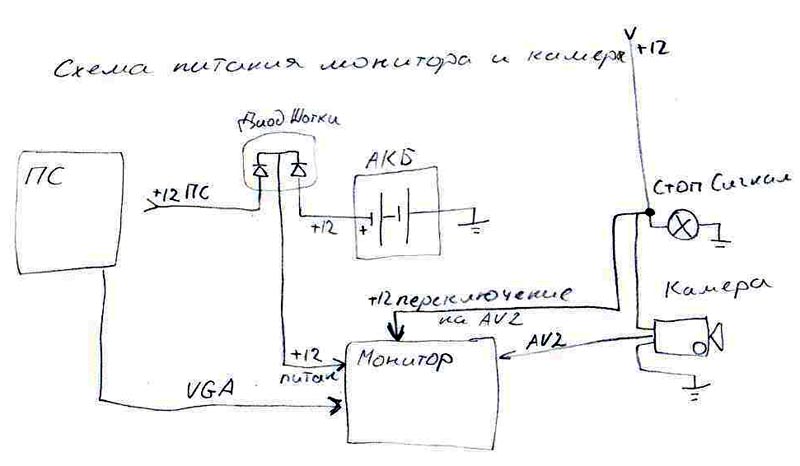 Схема питания монитора и камеры
+12
Диод Шотки
ПС
АКБ
+12 ПС
+12
+
Стоп Сигнал
+12 переключение
на AV2
Камера
AV2
+12
питан
Монитор
VGA